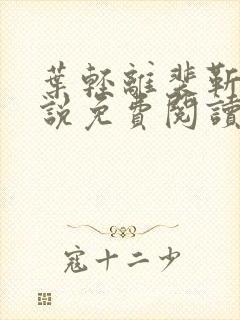 葉輕離裴靳
說免費閱讀
寇十二少